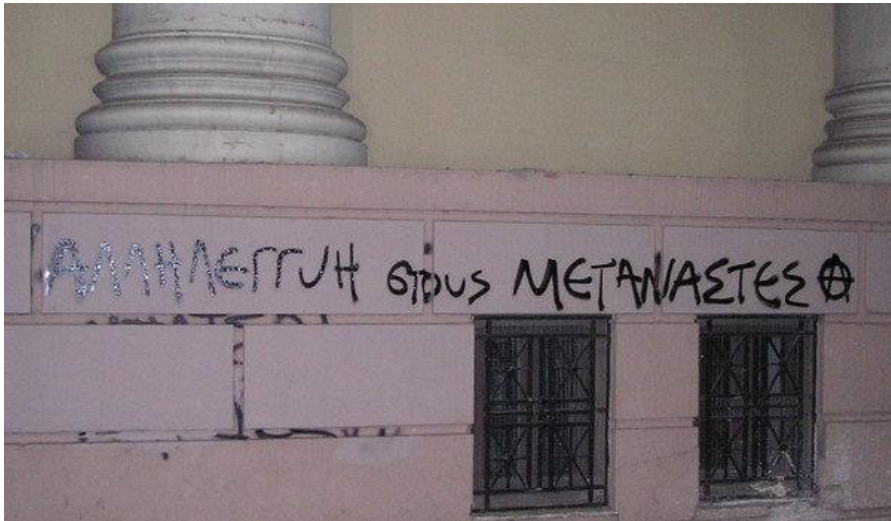 ΑΛΛΗΛΕΓΓΥΗ στους ΜΕΤΑΝΑΣΤΕΣ Ⓐ